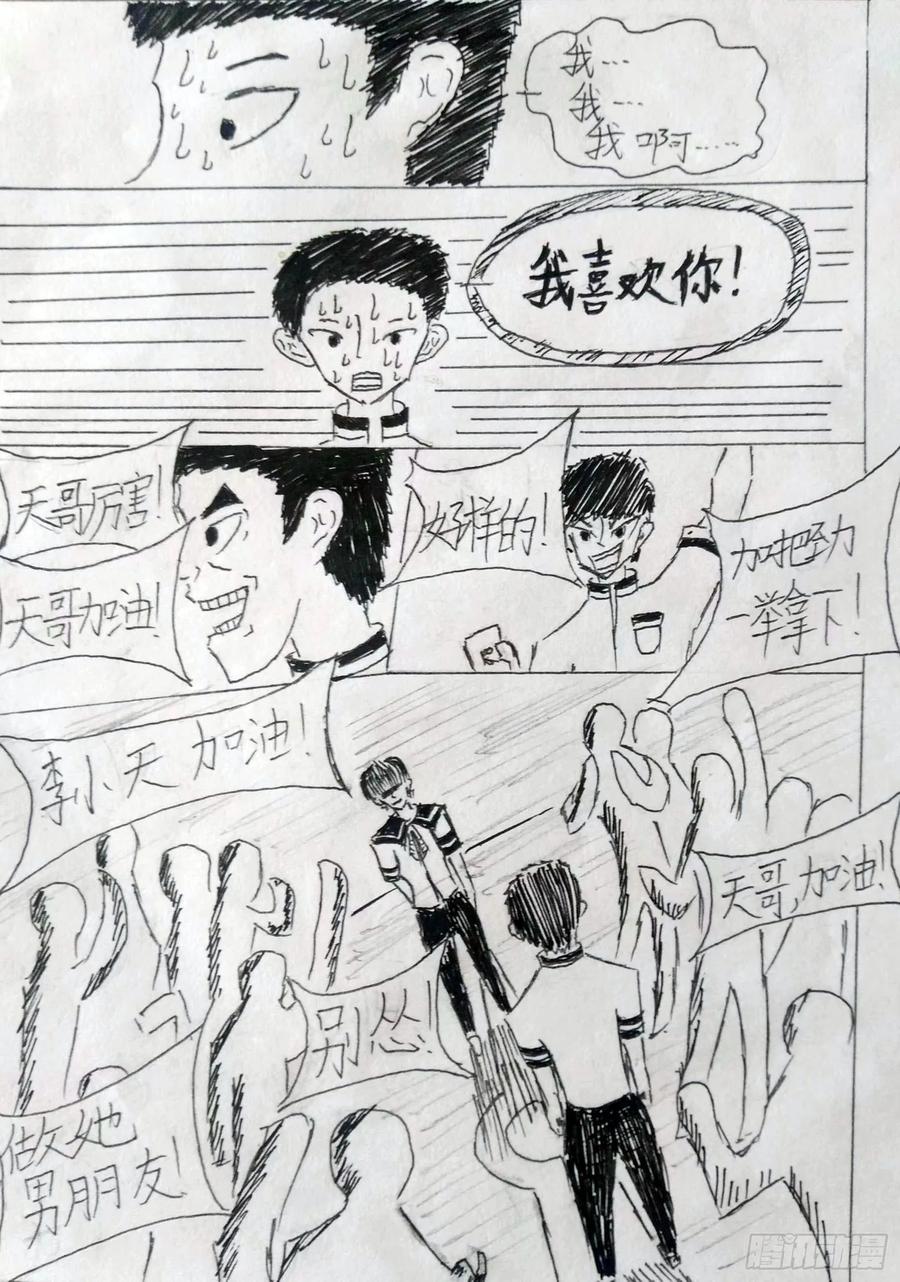 我…
我…
我啊……
我喜欢你！
天哥厉害！
天哥加油！
好样的！
加把劲
一举拿下！
李小天加油！
天哥，加油！
别怂！
做她
男朋友！
腾讯动漫